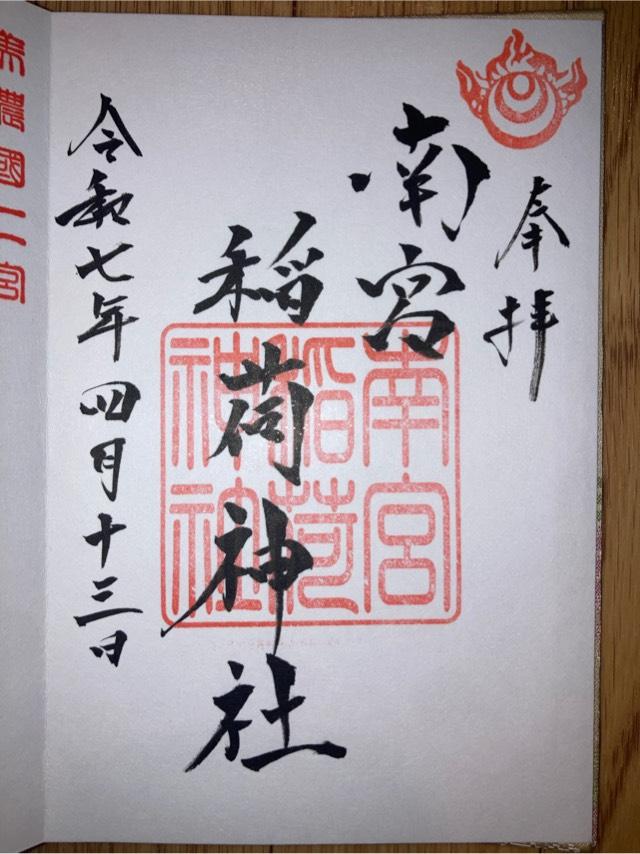 奉拝
南宮
稲荷神社
令和七年四月十三日
南宮
稲荷
神社
美濃國二宮